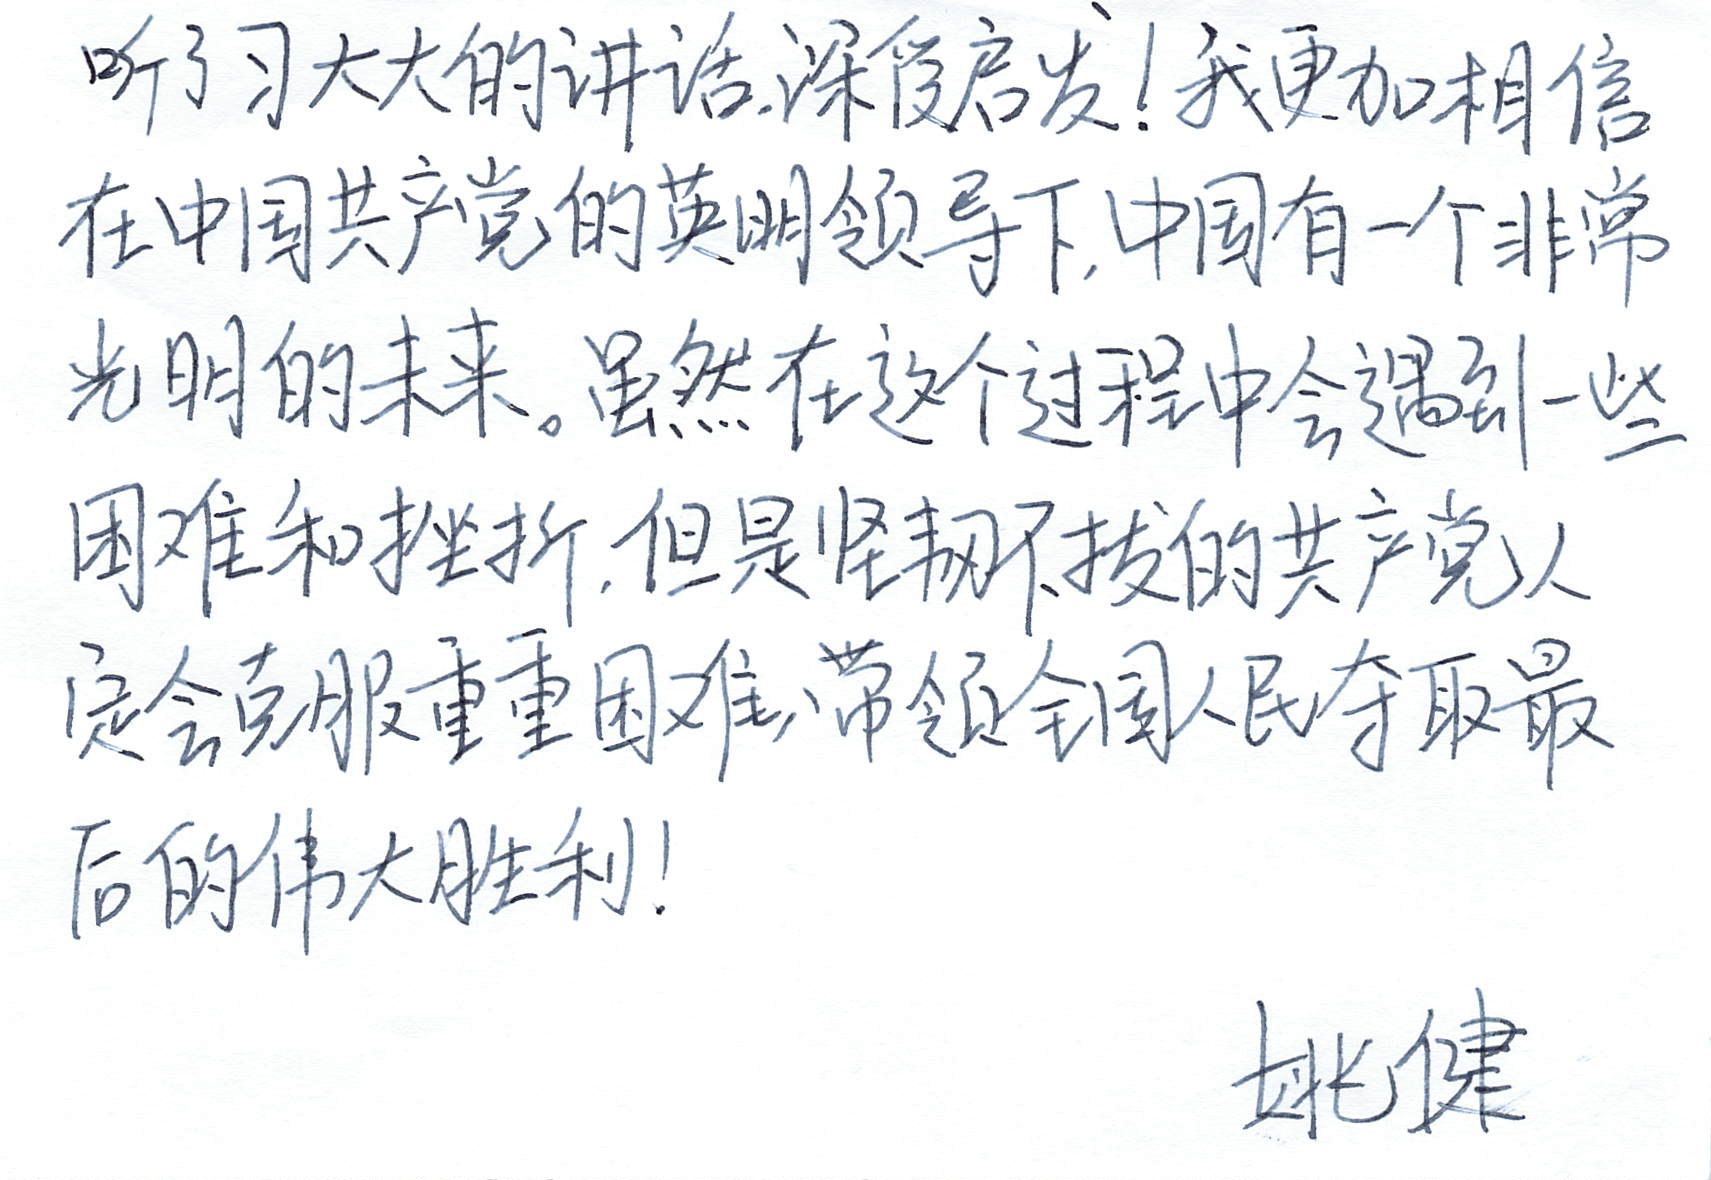 听了习大大的讲话,深受启发!我更加相信
在中国共产党的英明领导下,中国有一个非常
光明的未来。虽然在这个过程中会遇到一些
困难和挫折,但是坚韧不拔的共产党人
定会克服重重困难,带领全国人民夺取最
后的伟大胜利!
姚健